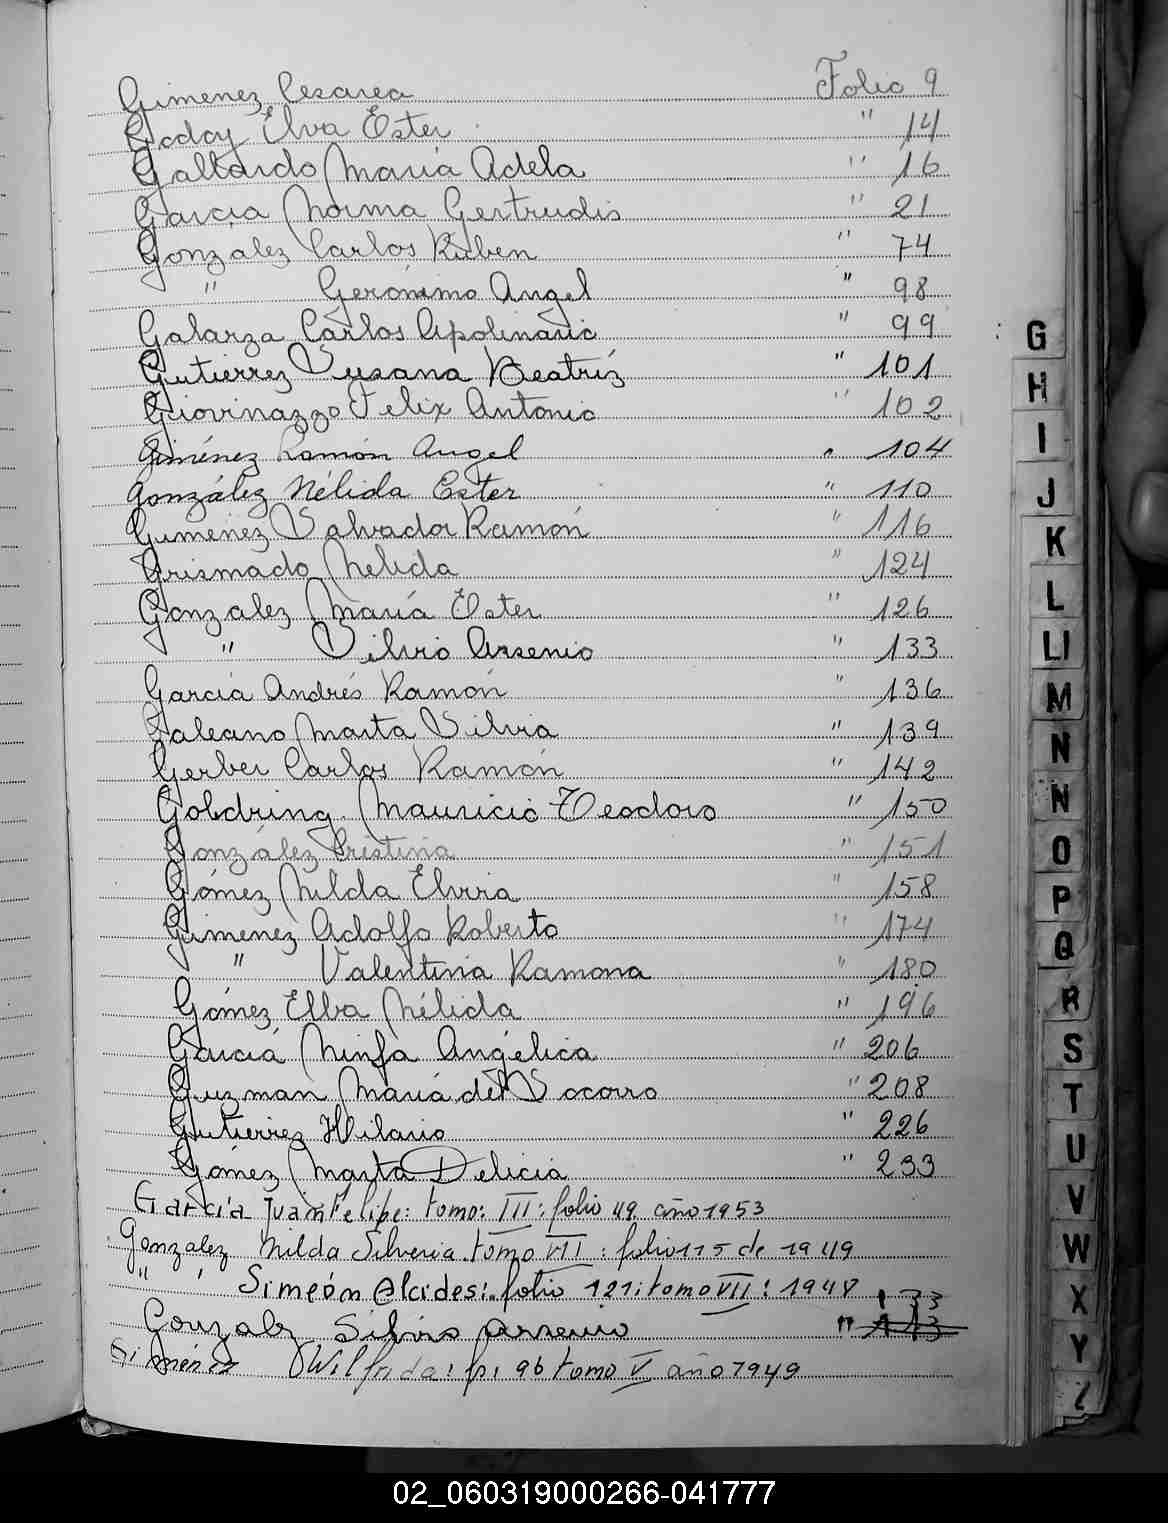 Gimenez Cesarea Folio 9
Godoy Elva Ester " 14
Gallardo María Adela " 16
García Norma Gertrudis " 21
González Carlos Rúben " 74
" Gerónimo Angel " 98
Galarza Carlos Apolinario " 99
Gutierrez Susana Beatríz " 101
Giovinazzo Felix Antonio " 102
Giménez Ramón Angel " 104
González Nélida Ester " 110
Gimenez Salvador Ramón " 116
Grismado Nelida " 124
Gonzalez María Ester " 126
" Silvio Arsenio " 133
García Andrés Ramón " 136
Galeano Marta Silvia " 139
Gerber Carlos Ramón " 142
Goldring Mauricio Teodoro " 150
González Cristina " 151
Gómez Nilda Elvira " 158
Gimenez Adolfo Roberto " 174
" Valentina Ramona " 180
Gómez Elba Nélida " 196
García Ninfa Angélica " 206
Guzman María del Socorro " 208
Gutierrez Hilario " 226
Gómez Marta Delicia " 233
García Juan Felipe: tomo: III: folio 49 año 1953
Gonzalez Nilda Silveria tomo VII: folio 115 de 1949
" " Simeón Alcides: folio 121: tomo VII: 1948
133
Gonzalz Silvio Arsenio " 113
Giménez Wilfrida: fº 96 tomo V año 1949
G
H
I
J
K
L
Ll
M
N
N
O
P
Q
R
S
T
U
V
W
X
Y
Z
02_060319000266-041777